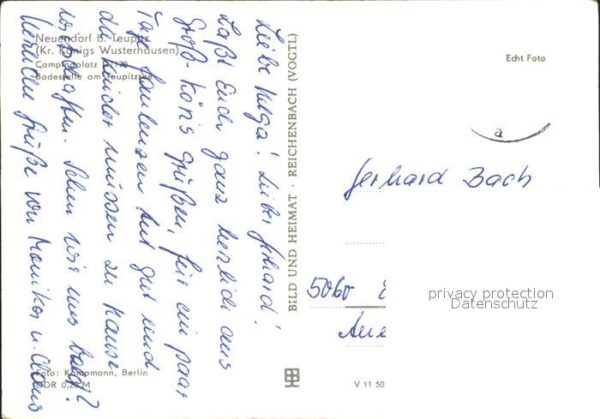 Neuendorf b. Teupitz
(Kr. Königs Wusterhausen)
Campingplatz D 170
Badestelle am Teupitzsee
Liebe Helga! Lieber Gerhard!
Laßt Euch ganz herzlich aus
Groß-Köris grüßen, für ein paar
Tage faulenzen tut gut und
die Kinder müssen zu Hause
wirtschaften. Sehn wir uns bald?
Herzliche Grüße von Monika u. Claus
Foto: Kühpmann, Berlin
DDR 0,20 M
BILD UND HEIMAT · REICHENBACH (VOGTL)
V 11 50
Echt Foto
a
Gerhard Bach
5060 E
Aue
privacy protection
Datenschutz